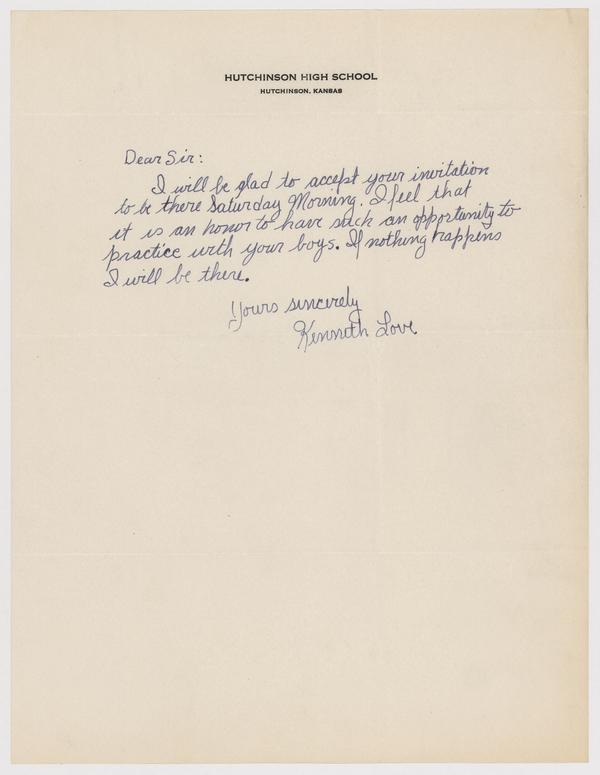 HUTCHINSON HIGH SCHOOL
HUTCHINSON, KANSAS
Dear Sir:
I will be glad to accept your invitation
to be there Saturday Morning. I feel that
it is an honor to have such an opportunity to
practice with your boys. If nothing happens
I will be there.
Yours sincerely
Kenneth Love